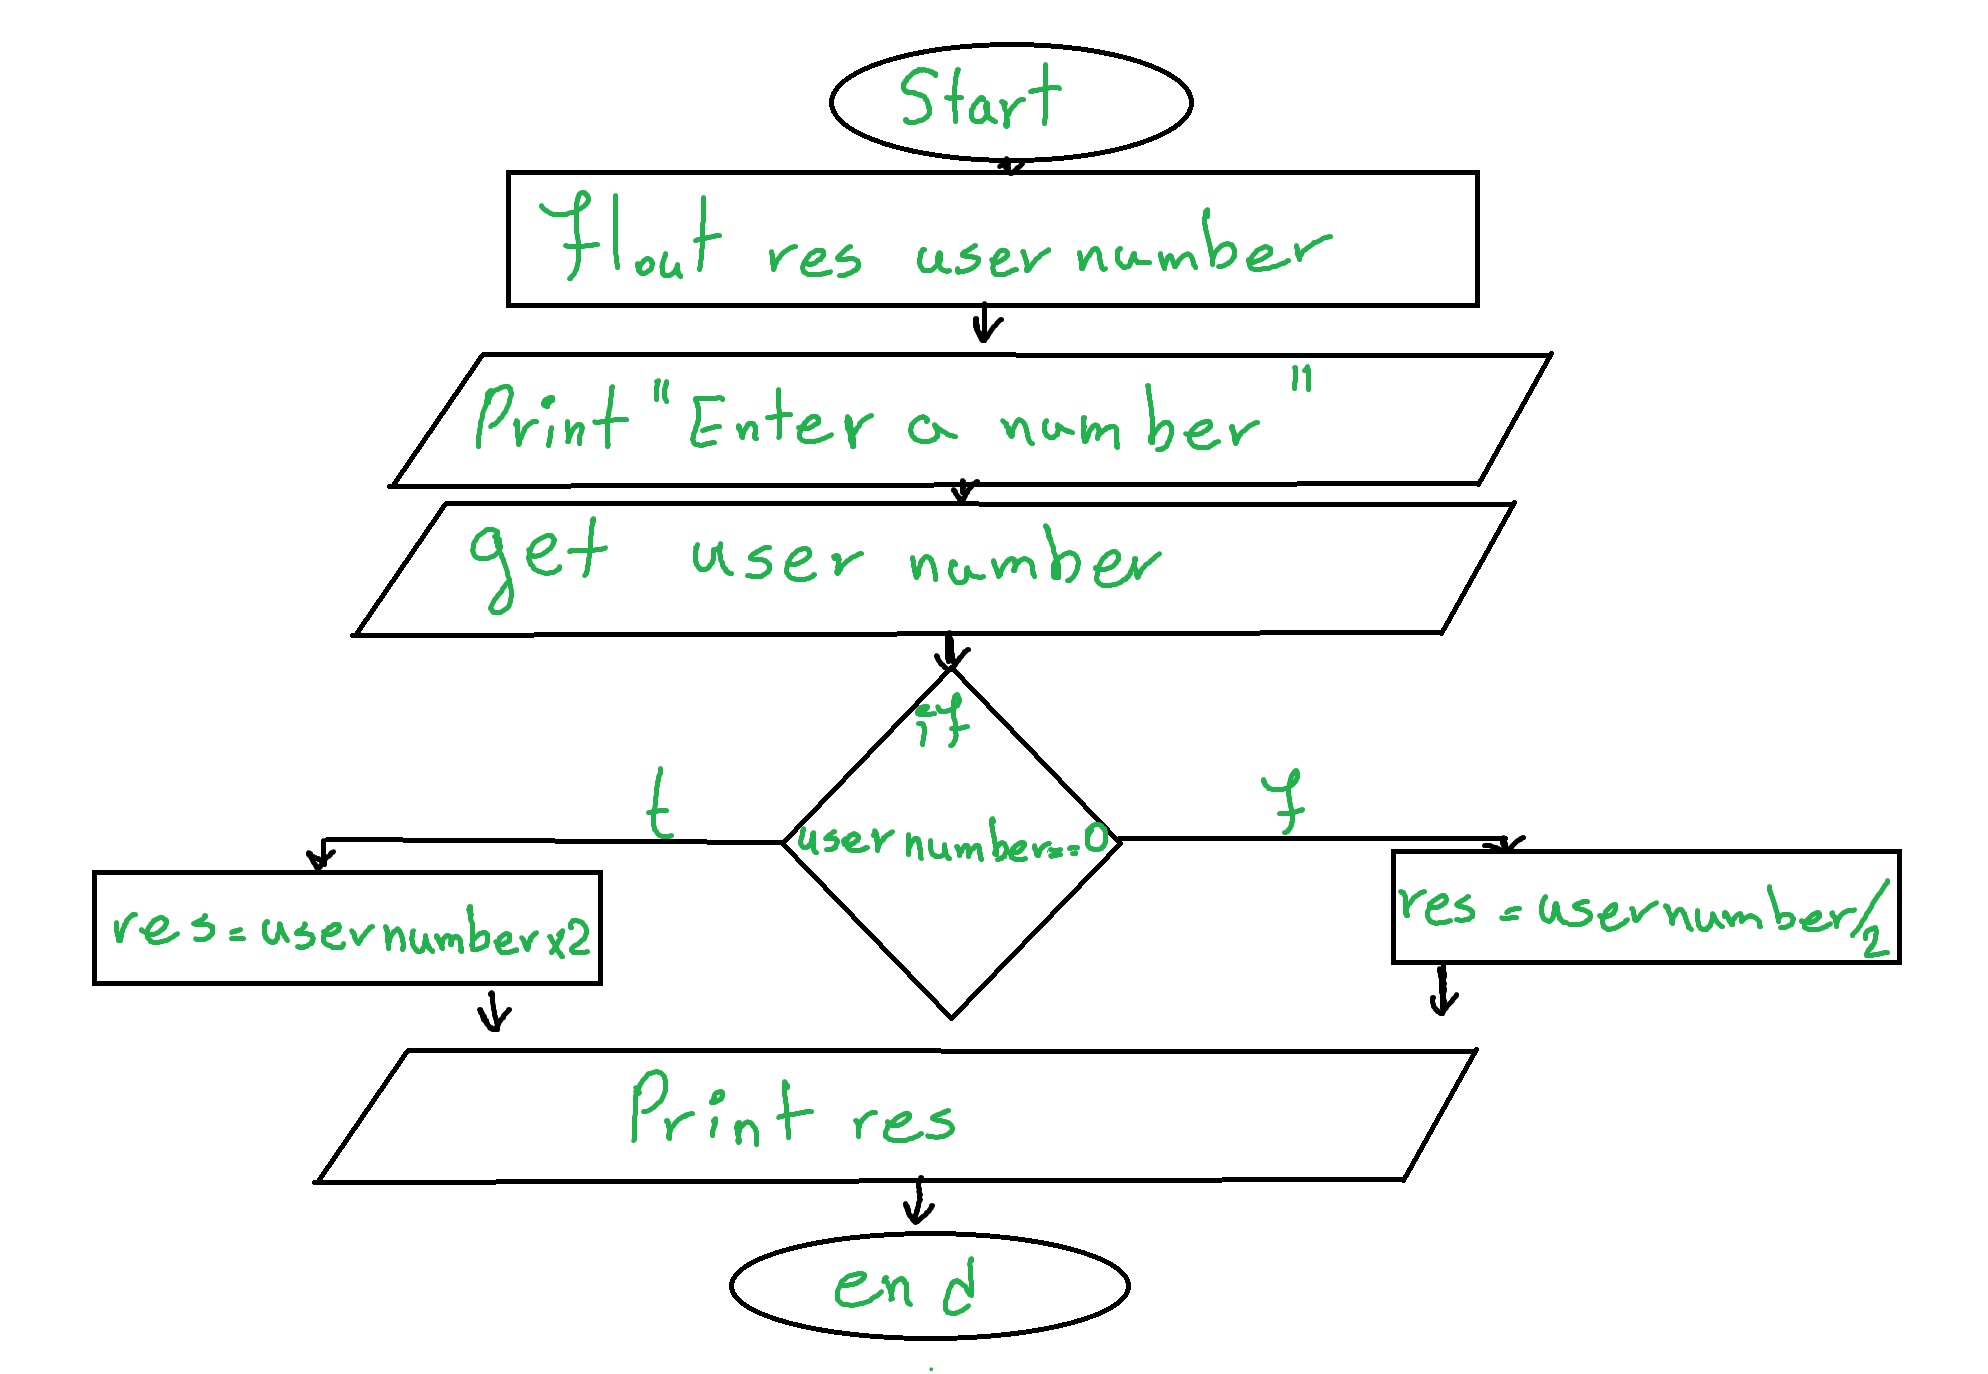 Start
Flout res user number
Print "Enter a number"
get user number
if
t
f
user number==0
res=user number x2
res = user number/2
Print res
end